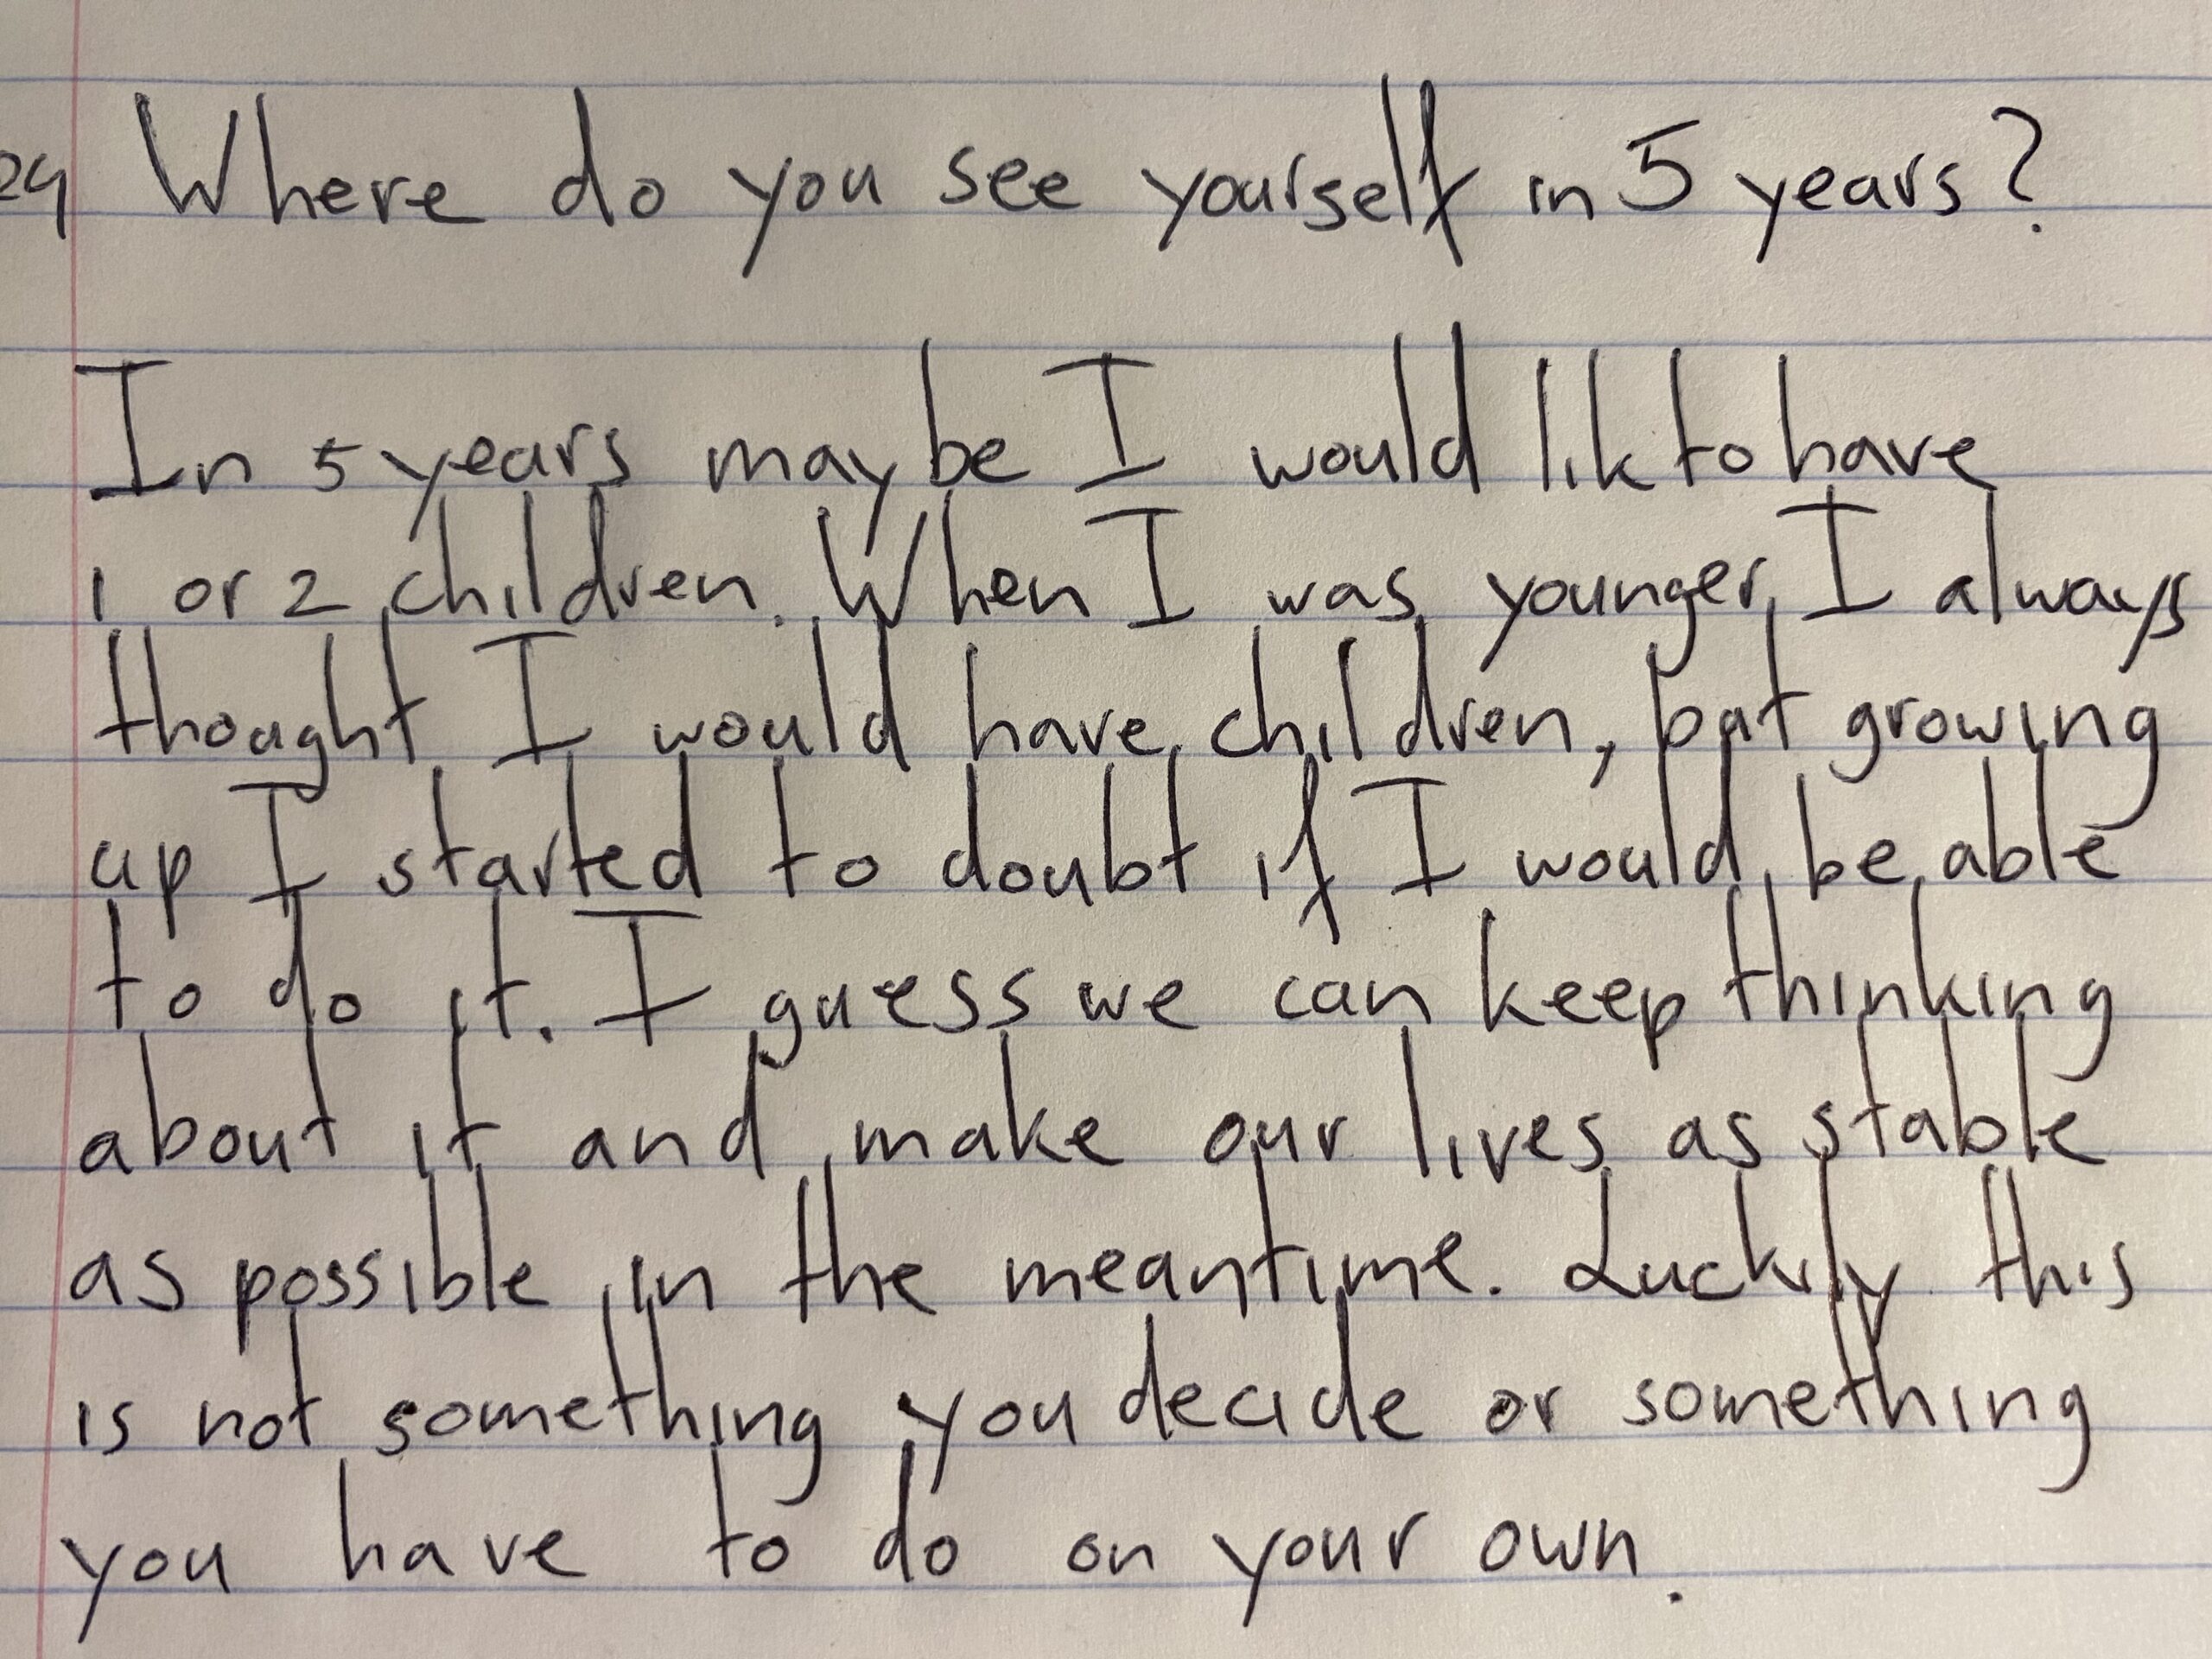 24 Where do you see yourself in 5 years?
In 5 years maybe I would lik to have
1 or 2 children. When I was younger I always
thought I would have children, but growing
up I started to doubt if I would be able
to do it. I guess we can keep thinking
about it and make our lives as stable
as possible in the meantime. Luckily this
is not something you decide or something
you have to do on your own.